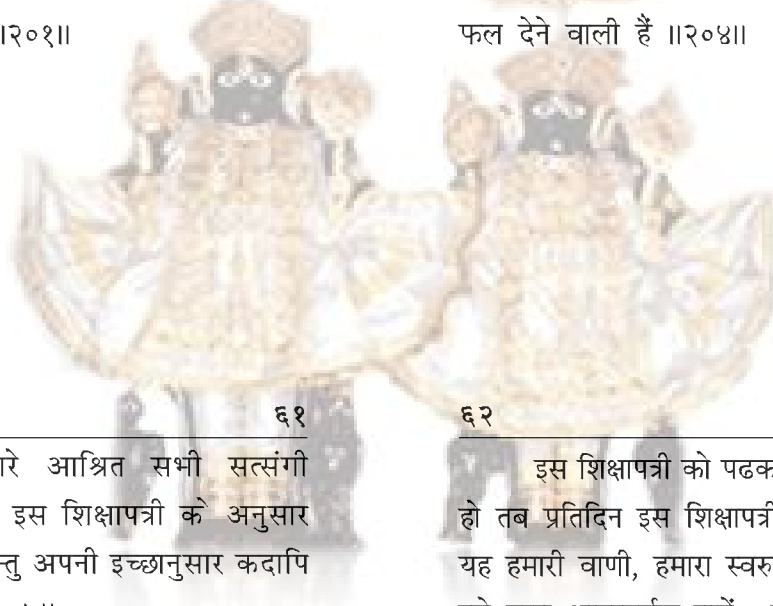 ॥२०१॥
६१
आश्रित सभी सत्संगी
इस शिक्षापत्री के अनुसार
अपनी इच्छानुसार कदापि
फल देने वाली हैं ॥२०४॥
६२
इस शिक्षापत्री को
हो तब प्रतिदिन इस शिक्षापत्री
यह हमारी वाणी, हमारा